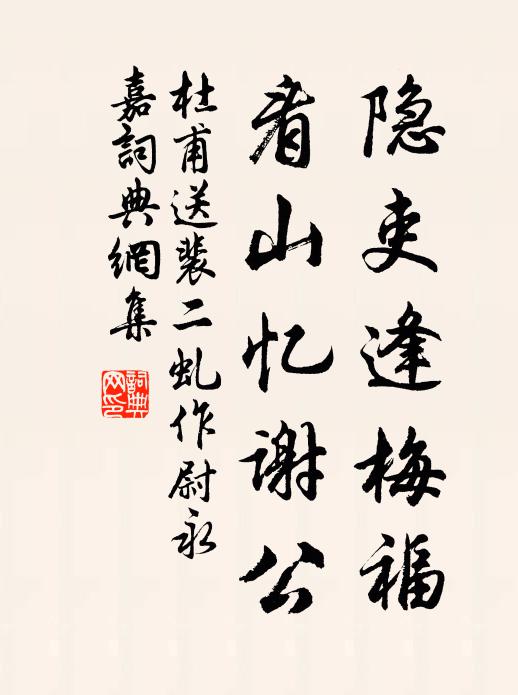 隐吏逢梅福
看山忆谢公
杜甫送裴二虬作尉永
嘉詞典網集
詞典
网印